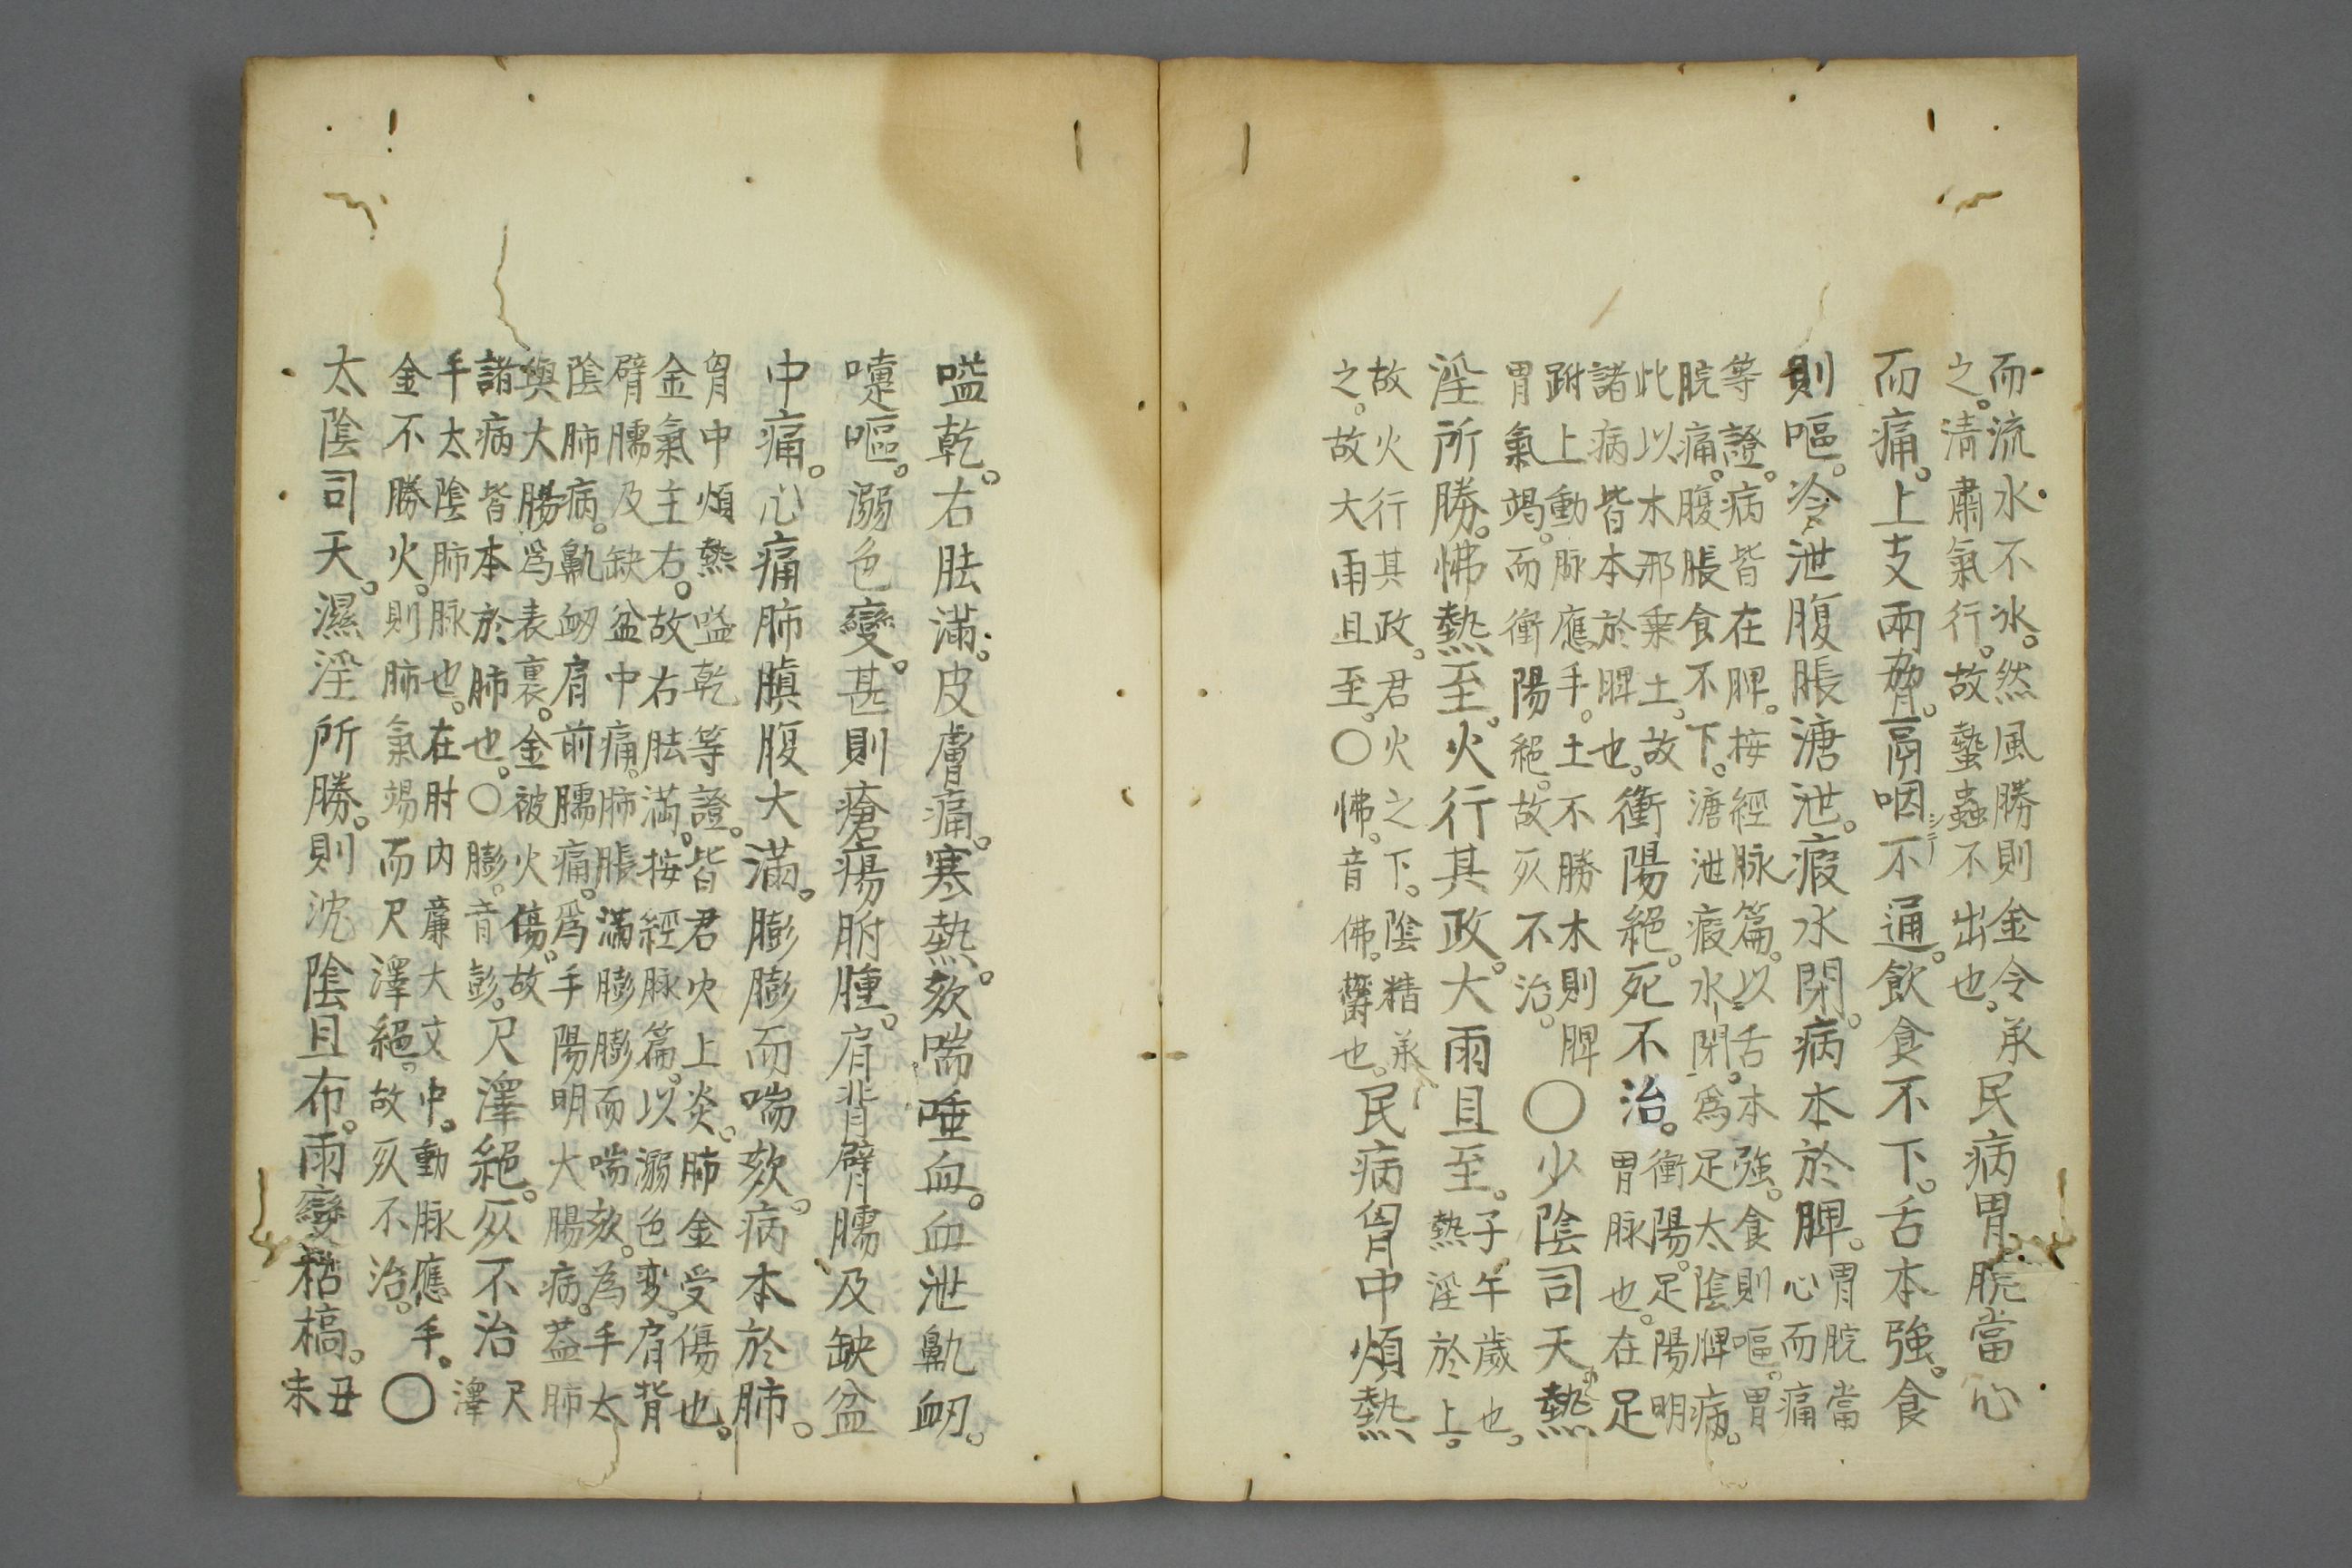 而流水不冰。然風勝則金令承
之。清肅氣行。故蟄蟲不出也。
民病胃脘當心
而痛。上支兩脅。鬲咽不通。飲食不下。舌本強。食
則嘔。冷泄腹脹溏泄。瘕水閉。病本於脾。
胃脘當
心而痛
等證。病皆在脾。按經脉篇。以舌本強。食則嘔。胃
脘痛。腹脹食不下。溏泄瘕水閉。爲足太陰脾病。
此以木邪乗土。故
諸病皆本於脾也。
衝陽絕。死不治。
衝陽。足陽明
胃脉也。在足
跗上動脉應手。土不勝木則脾
胃氣竭。而衝陽絕。故死不治。
○少陰司天熱
淫所勝。怫熱至。火行其政。大雨且至。
子午歲也。
熱淫於上。
故火行其政。君火之下。陰精承
之。故大雨且至。○怫。音佛。鬱也。
民病胷中煩熱
嗌乾。右胠滿。皮膚痛。寒熱。欬喘唾血。血泄鼽衂。
嚏嘔。溺色變。甚則瘡瘍胕腫。肩背臂臑及缺盆
中痛。心痛肺䐜腹大滿。膨膨而喘欬。病本於肺。
胷中煩熱嗌乾等證。皆君火上炎。肺金受傷也。
金氣主右。故右胠滿。按經脉篇。以溺色変。肩背
臂臑及缺盆中痛。肺脹滿膨膨而喘欬。為手太
陰肺病。鼽衂肩前臑痛。爲手陽明大腸病。葢肺
與大腸爲表裏。金被火傷。故
諸病皆本於肺也。○膨。音彭。
尺澤絕。死不治
尺
澤
手太陰肺脉也。在肘内亷大文中。動脉應手。
金不勝火。則肺氣竭而尺澤絕。故死不治。○
太陰司天。濕淫所勝。則沈陰且布。雨變枯槁。
丑
未